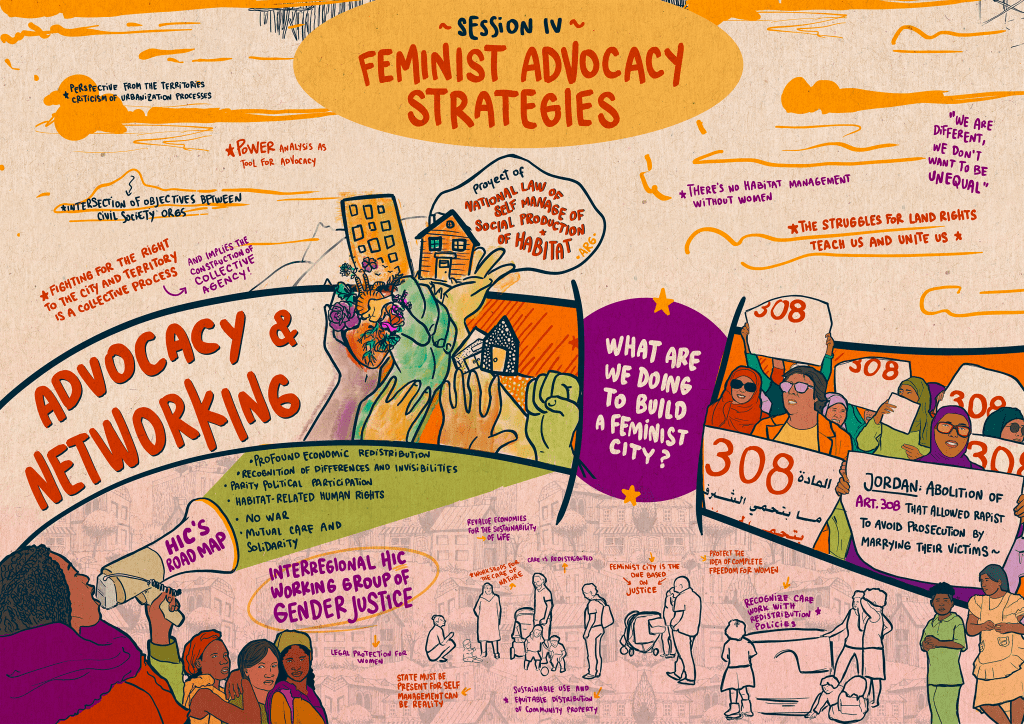 ~ SESSION IV ~
FEMINIST ADVOCACY
STRATEGIES
* PERSPECTIVE FROM THE TERRITORIES
CRITICISM OF URBANIZATION PROCESSES
* POWER ANALYSIS AS
TOOL FOR ADVOCACY
* INTERSECTION OF OBJECTIVES BETWEEN
CIVIL SOCIETY ORGS
* FIGHTING FOR THE RIGHT
TO THE CITY AND TERRITORY
IS A COLLECTIVE PROCESS
AND IMPLIES THE
CONSTRUCTION OF
COLLECTIVE
AGENCY!
PROYECT OF
NATIONAL LAW OF
SELF MANAGE OF
SOCIAL PRODUCTION
OF HABITAT
*ARG*
"WE ARE
DIFFERENT,
WE DON'T
WANT TO BE
UNEQUAL"
* THERE'S NO HABITAT MANAGEMENT
WITHOUT WOMEN
* THE STRUGGLES FOR LAND RIGHTS
TEACH US AND UNITE US *
ADVOCACY &
NETWORKING
WHAT ARE
WE DOING
TO BUILD
A FEMINIST
CITY?
308
308
308
308
308 المادة
ما بتحمي الشرف
JORDAN: ABOLITION OF
ART. 308 THAT ALLOWED RAPIST
TO AVOID PROSECUTION BY
MARRYING THEIR VICTIMS ~
HIC'S
ROAD MAP
• PROFOUND ECONOMIC REDISTRIBUTION
• RECOGNITION OF DIFFERENCES AND INVISIBILITIES
• PARITY POLITICAL PARTICIPATION
• HABITAT-RELATED HUMAN RIGHTS
• NO WAR
• MUTUAL CARE AND
SOLIDARITY
INTERREGIONAL HIC
WORKING GROUP OF
GENDER JUSTICE
REVALUE ECONOMIES
FOR THE SUSTAINABILITY
OF LIFE
* WORKSHOPS FOR
THE CARE OF
NATURE
CARE IS REDISTRIBUTED
FEMINIST CITY IS THE
ONE BASED
ON
JUSTICE
PROTECT THE
IDEA OF COMPLETE
FREEDOM FOR WOMEN
RECOGNIZE CARE
WORK WITH
REDISTRIBUTION *
POLICIES
LEGAL PROTECTION FOR
WOMEN
STATE MUST BE
PRESENT FOR SELF
MANAGEMENT CAN
BE REALITY
SUSTAINABLE USE AND
* EQUITABLE DISTRIBUTION
OF COMMUNITY PROPERTY